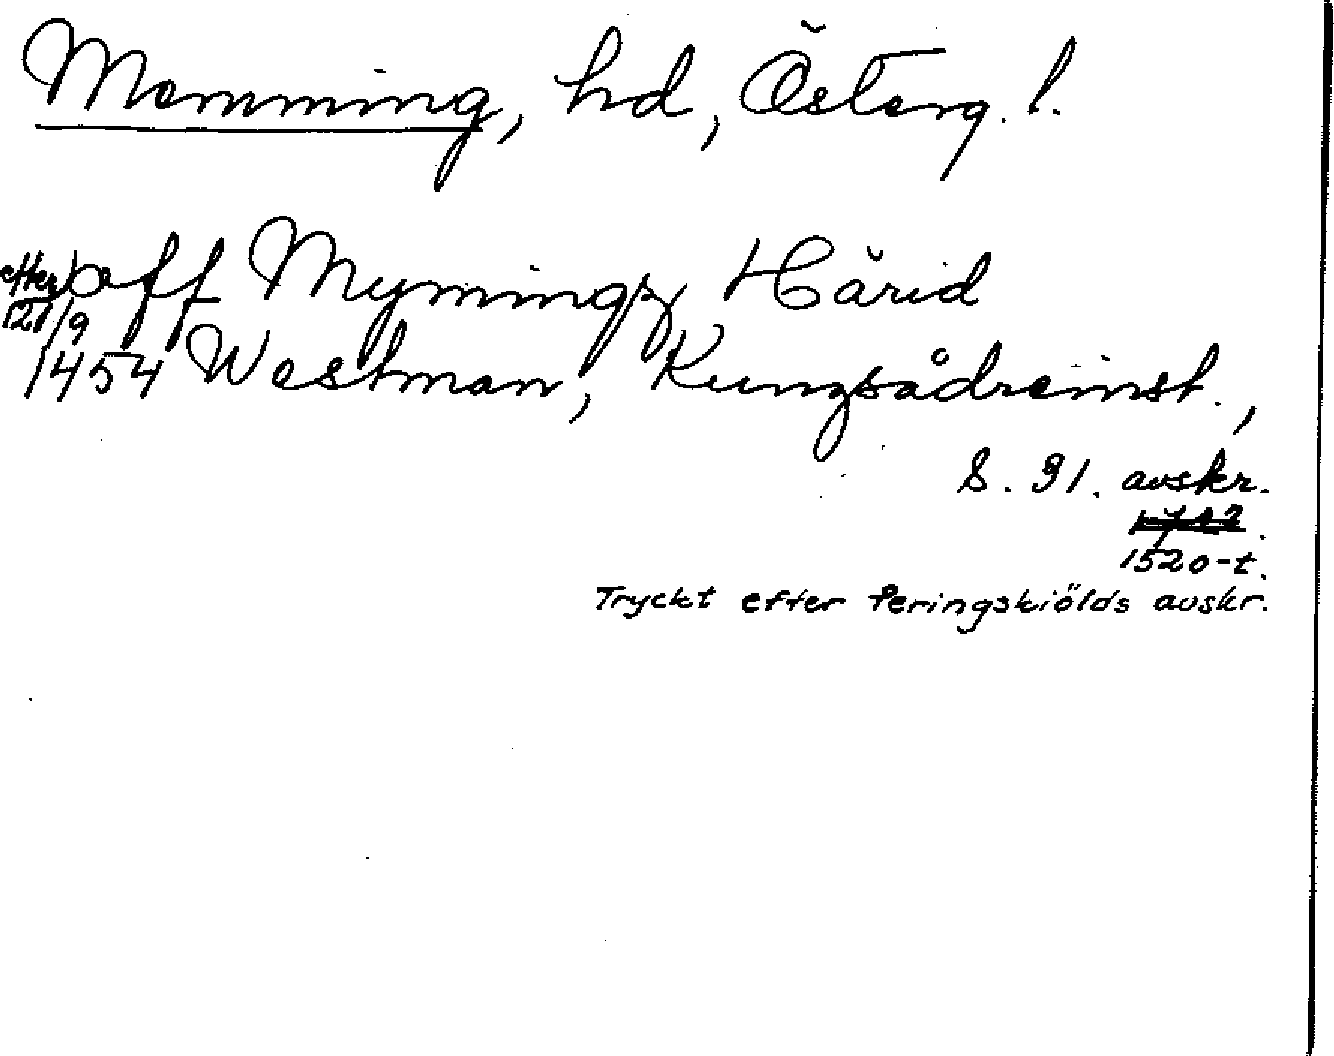 Memming, hd, Österg. l.
efter) aff Mymingz Härid
12/9
1454 Westman, Kungsådreinst.,
S. 31. avskr.
1520-t.
Tryckt efter Peringskiölds avskr.